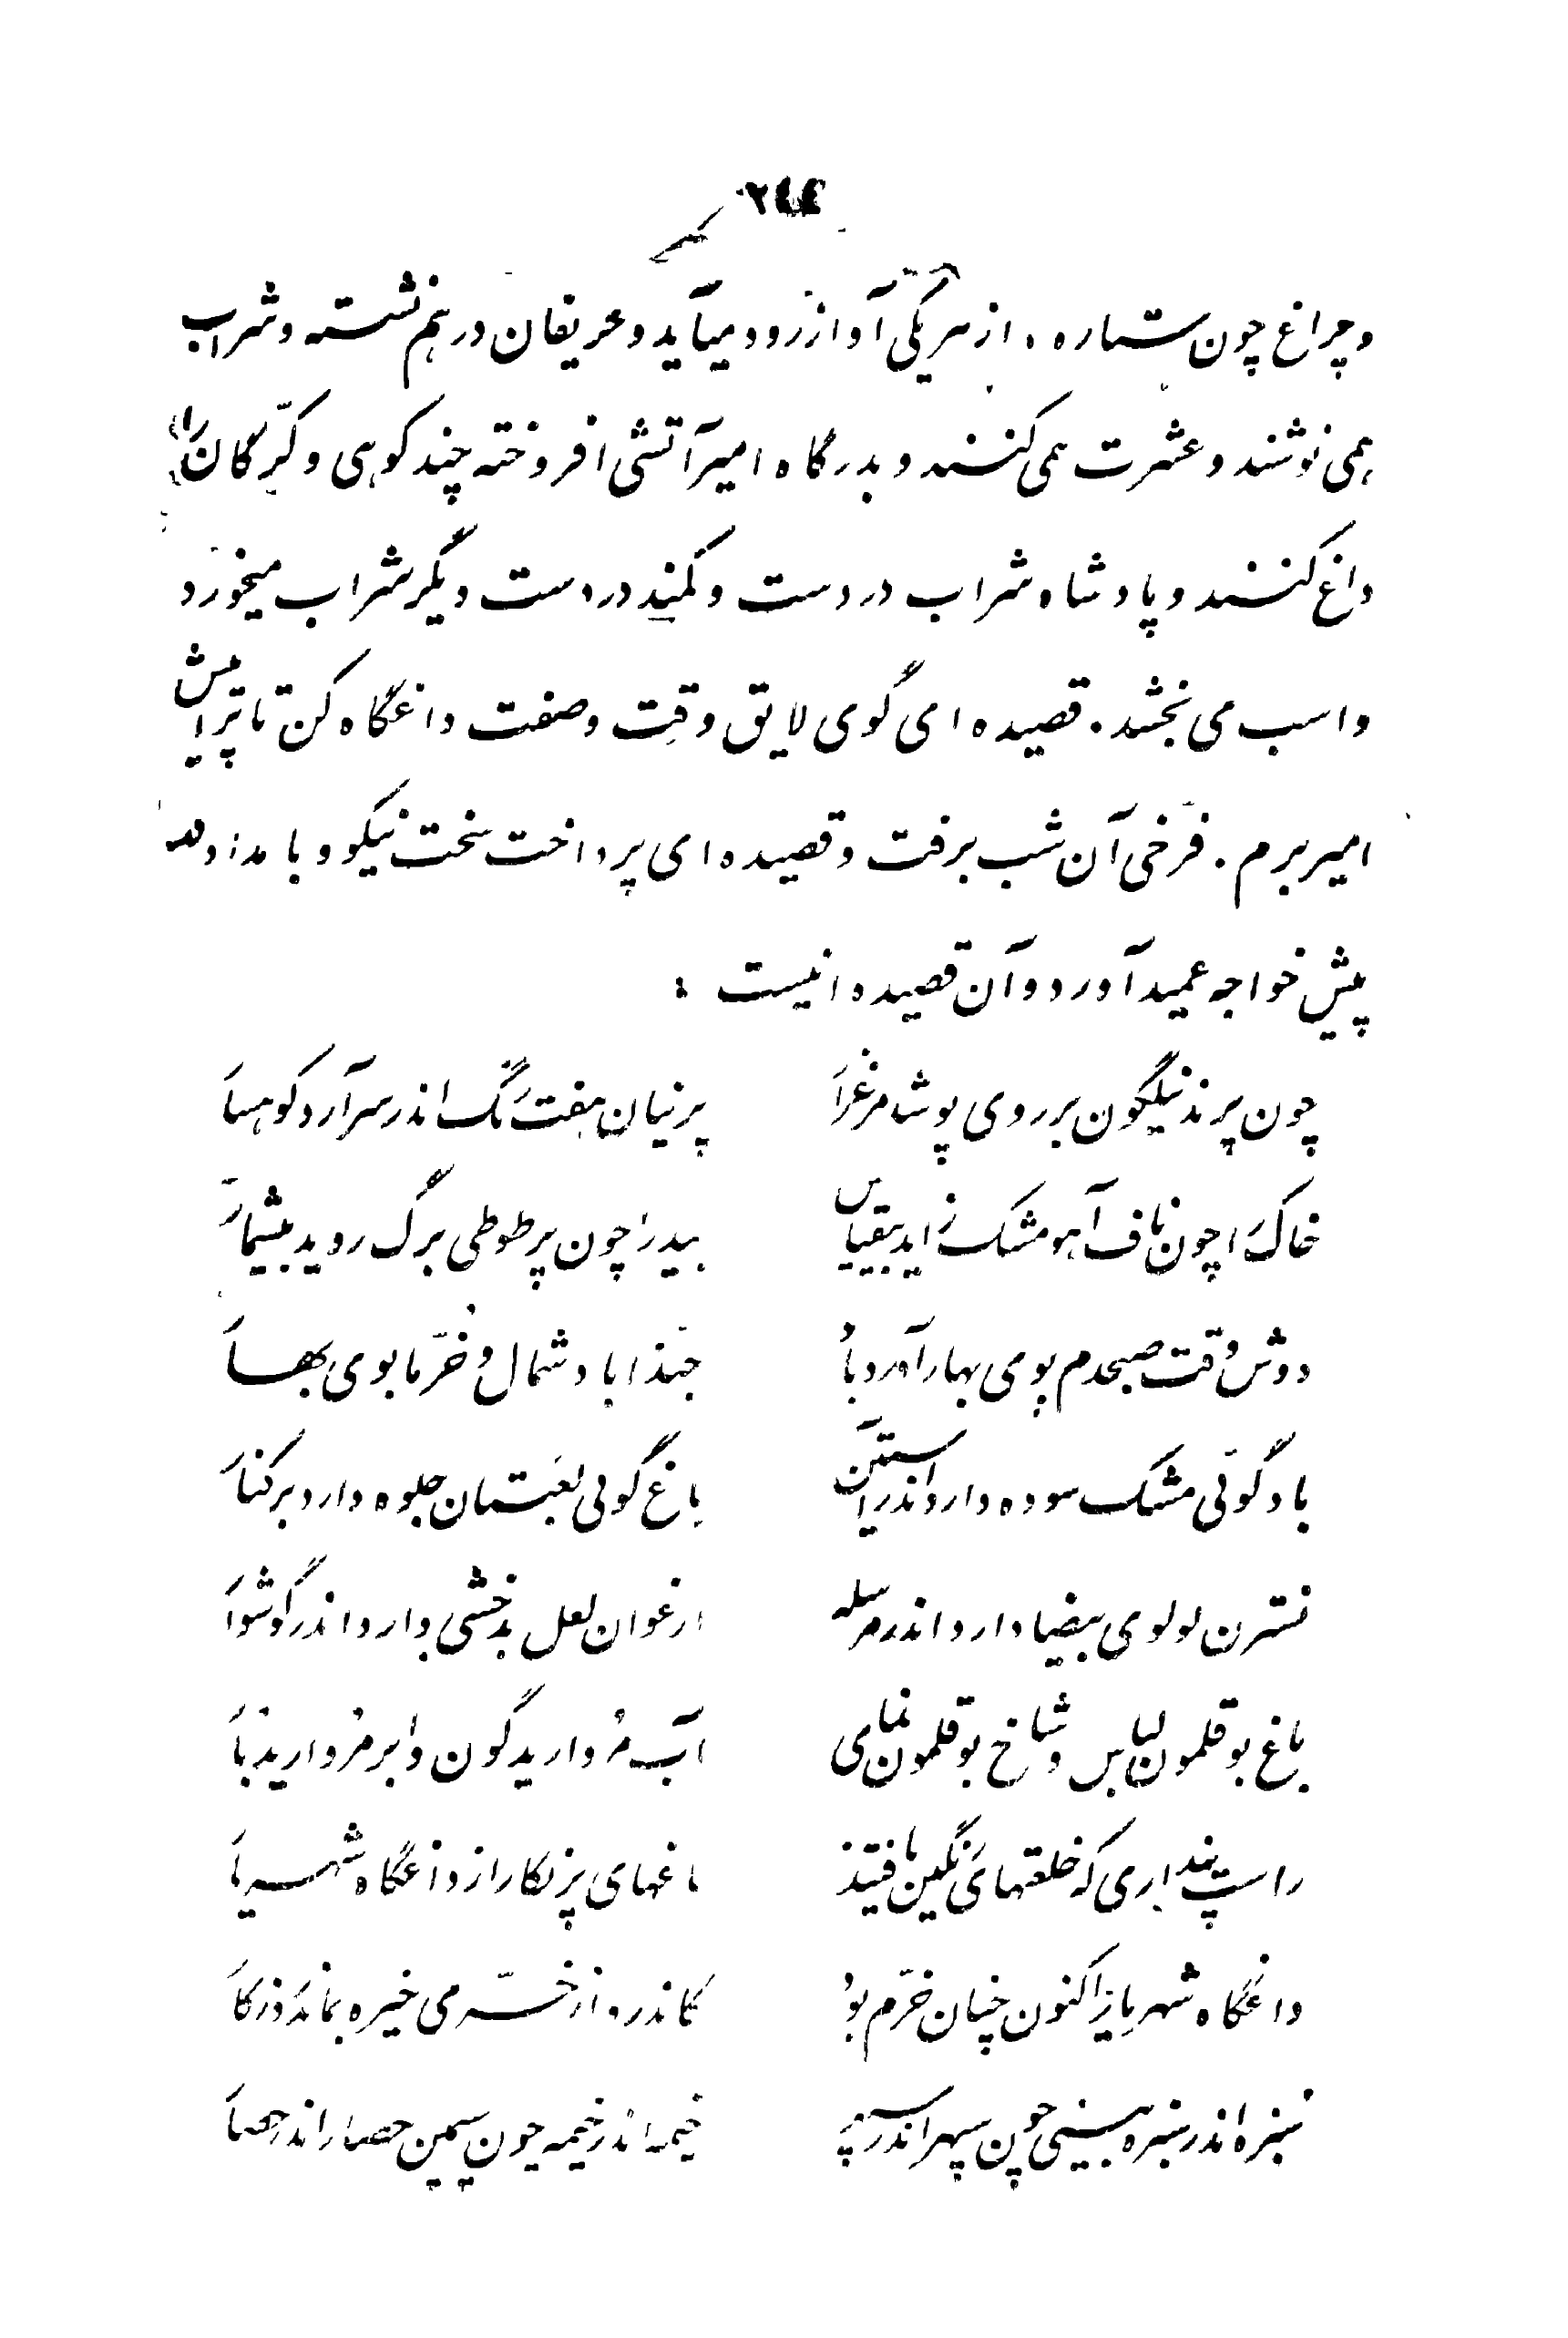 ۲۴۴
و چراغ چون ستاره ، از هر یکی آواز رود میآید و حریفان در هم نشسته و شراب
همی نوشند و عشرت همی کنند و بدرگاه امیر آتشی افروخته چند کوهی و کرّگان را
داغ کنند و پادشاه شراب در دست و کمند در دست دیگر شراب میخورد
و اسب می بخشد . قصیده ای گوی لایق وقت و صفت داغگاه کن تا ترا پیش
امیر برم . فرّخی آن شب برفت و قصیده ای پرداخت سخت نیکو و بامداد
پیش خواجه عمید آورد و آن قصیده اینست :
چون پرند نیلگون بر روی پوشد مرغزار پرنیان هفت رنگ اندر سر آرد کوهسار
خاک را چون ناف آهو مشک زاید بیقیاس بید را چون پر طوطی برگ روید بیشمار
دوش وقت صبحدم بوی بهار آورد باد حبّذا باد شمال و خرّما بوی بهار
باد گوئی مشک سوده دارد اندر آستین باغ گوئی لعبتان جلوه دارد بر کنار
نسترن لولوی بیضا دارد اندر مرسله ارغوان لعل بدخشی دارد اندر گوشوار
باغ بوقلمون لباس و شاخ بوقلمون نمای آب مروارید گون و ابر مروارید بار
راست پنداری که خلعتهای رنگین یافتند باغهای پر نگار از داغگاه شهریار
داغگاه شهریار اکنون چنان خرّم بود کاندرو از خرّمی خیره بماند روزگار
سبزه اندر سبزه بینی چون سپهر اندر سپهر خیمه اندر خیمه چون سیمین حصار اندر حصار